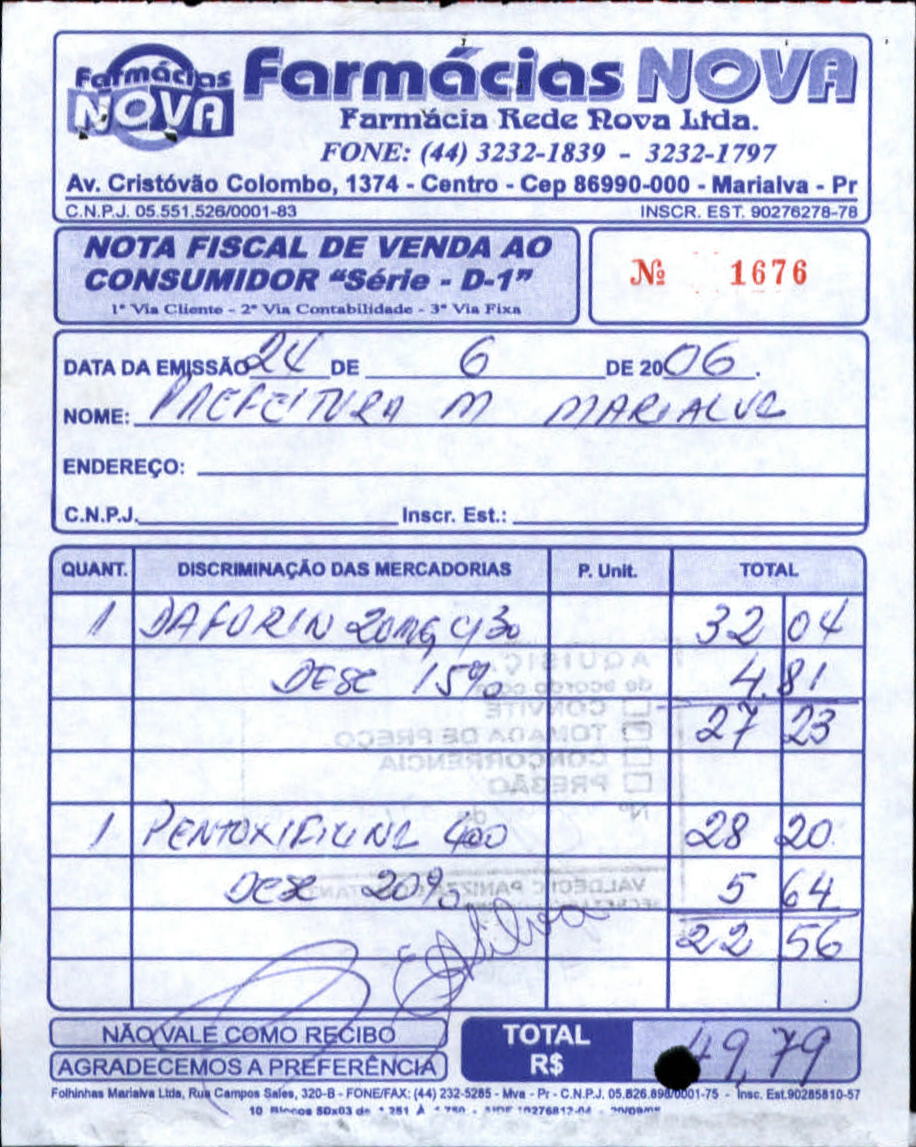 Farmácias NOVA
Farmácias NOVA
Farmácia Rede Nova Ltda.
FONE: (44) 3232-1839 - 3232-1797
Av. Cristóvão Colombo, 1374 - Centro - Cep 86990-000 - Marialva - Pr
C.N.P.J. 05.551.526/0001-83 INSCR. EST. 90276278-78
NOTA FISCAL DE VENDA AO
CONSUMIDOR "Série - D-1"
1ª Via Cliente - 2ª Via Contabilidade - 3ª Via Fixa
Nº 1676
DATA DA EMISSÃO 24 DE 6 DE 2006.
NOME: PREFEITURA M MARIALVA
ENDEREÇO:
C.N.P.J. Inscr. Est.:
QUANT. DISCRIMINAÇÃO DAS MERCADORIAS P. Unit. TOTAL
1 DAFORIN 20MG C/30 32 04
DESC 15% 4,81
27 23
1 PENTOXIFILINA 400 28 20
DESC 20% 5 64
22 56
AQUISIÇÃO
de acordo com
CONVITE
TOMADA DE PREÇO
CONCORRÊNCIA
PREGÃO
Nº
Silva
NÃO VALE COMO RECIBO
AGRADECEMOS A PREFERÊNCIA
TOTAL R$ 49,79
Folhinhas Marialva Ltda, Rua Campos Sales, 320-B - FONE/FAX: (44) 232-5285 - Mva - Pr - C.N.P.J. 05.826.898/0001-75 - Insc. Est.90285810-57
10 Blocos 50x03 de